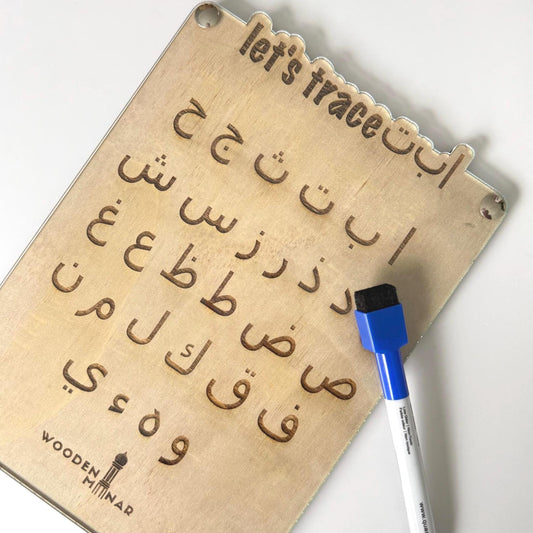 let's trace ا ب ت
ا ب ت ث ج ح
د ذ ر ز س ش
ص ض ط ظ ع غ
ف ق ك ل م ن
و ه ء ي
WOODEN
MINAR